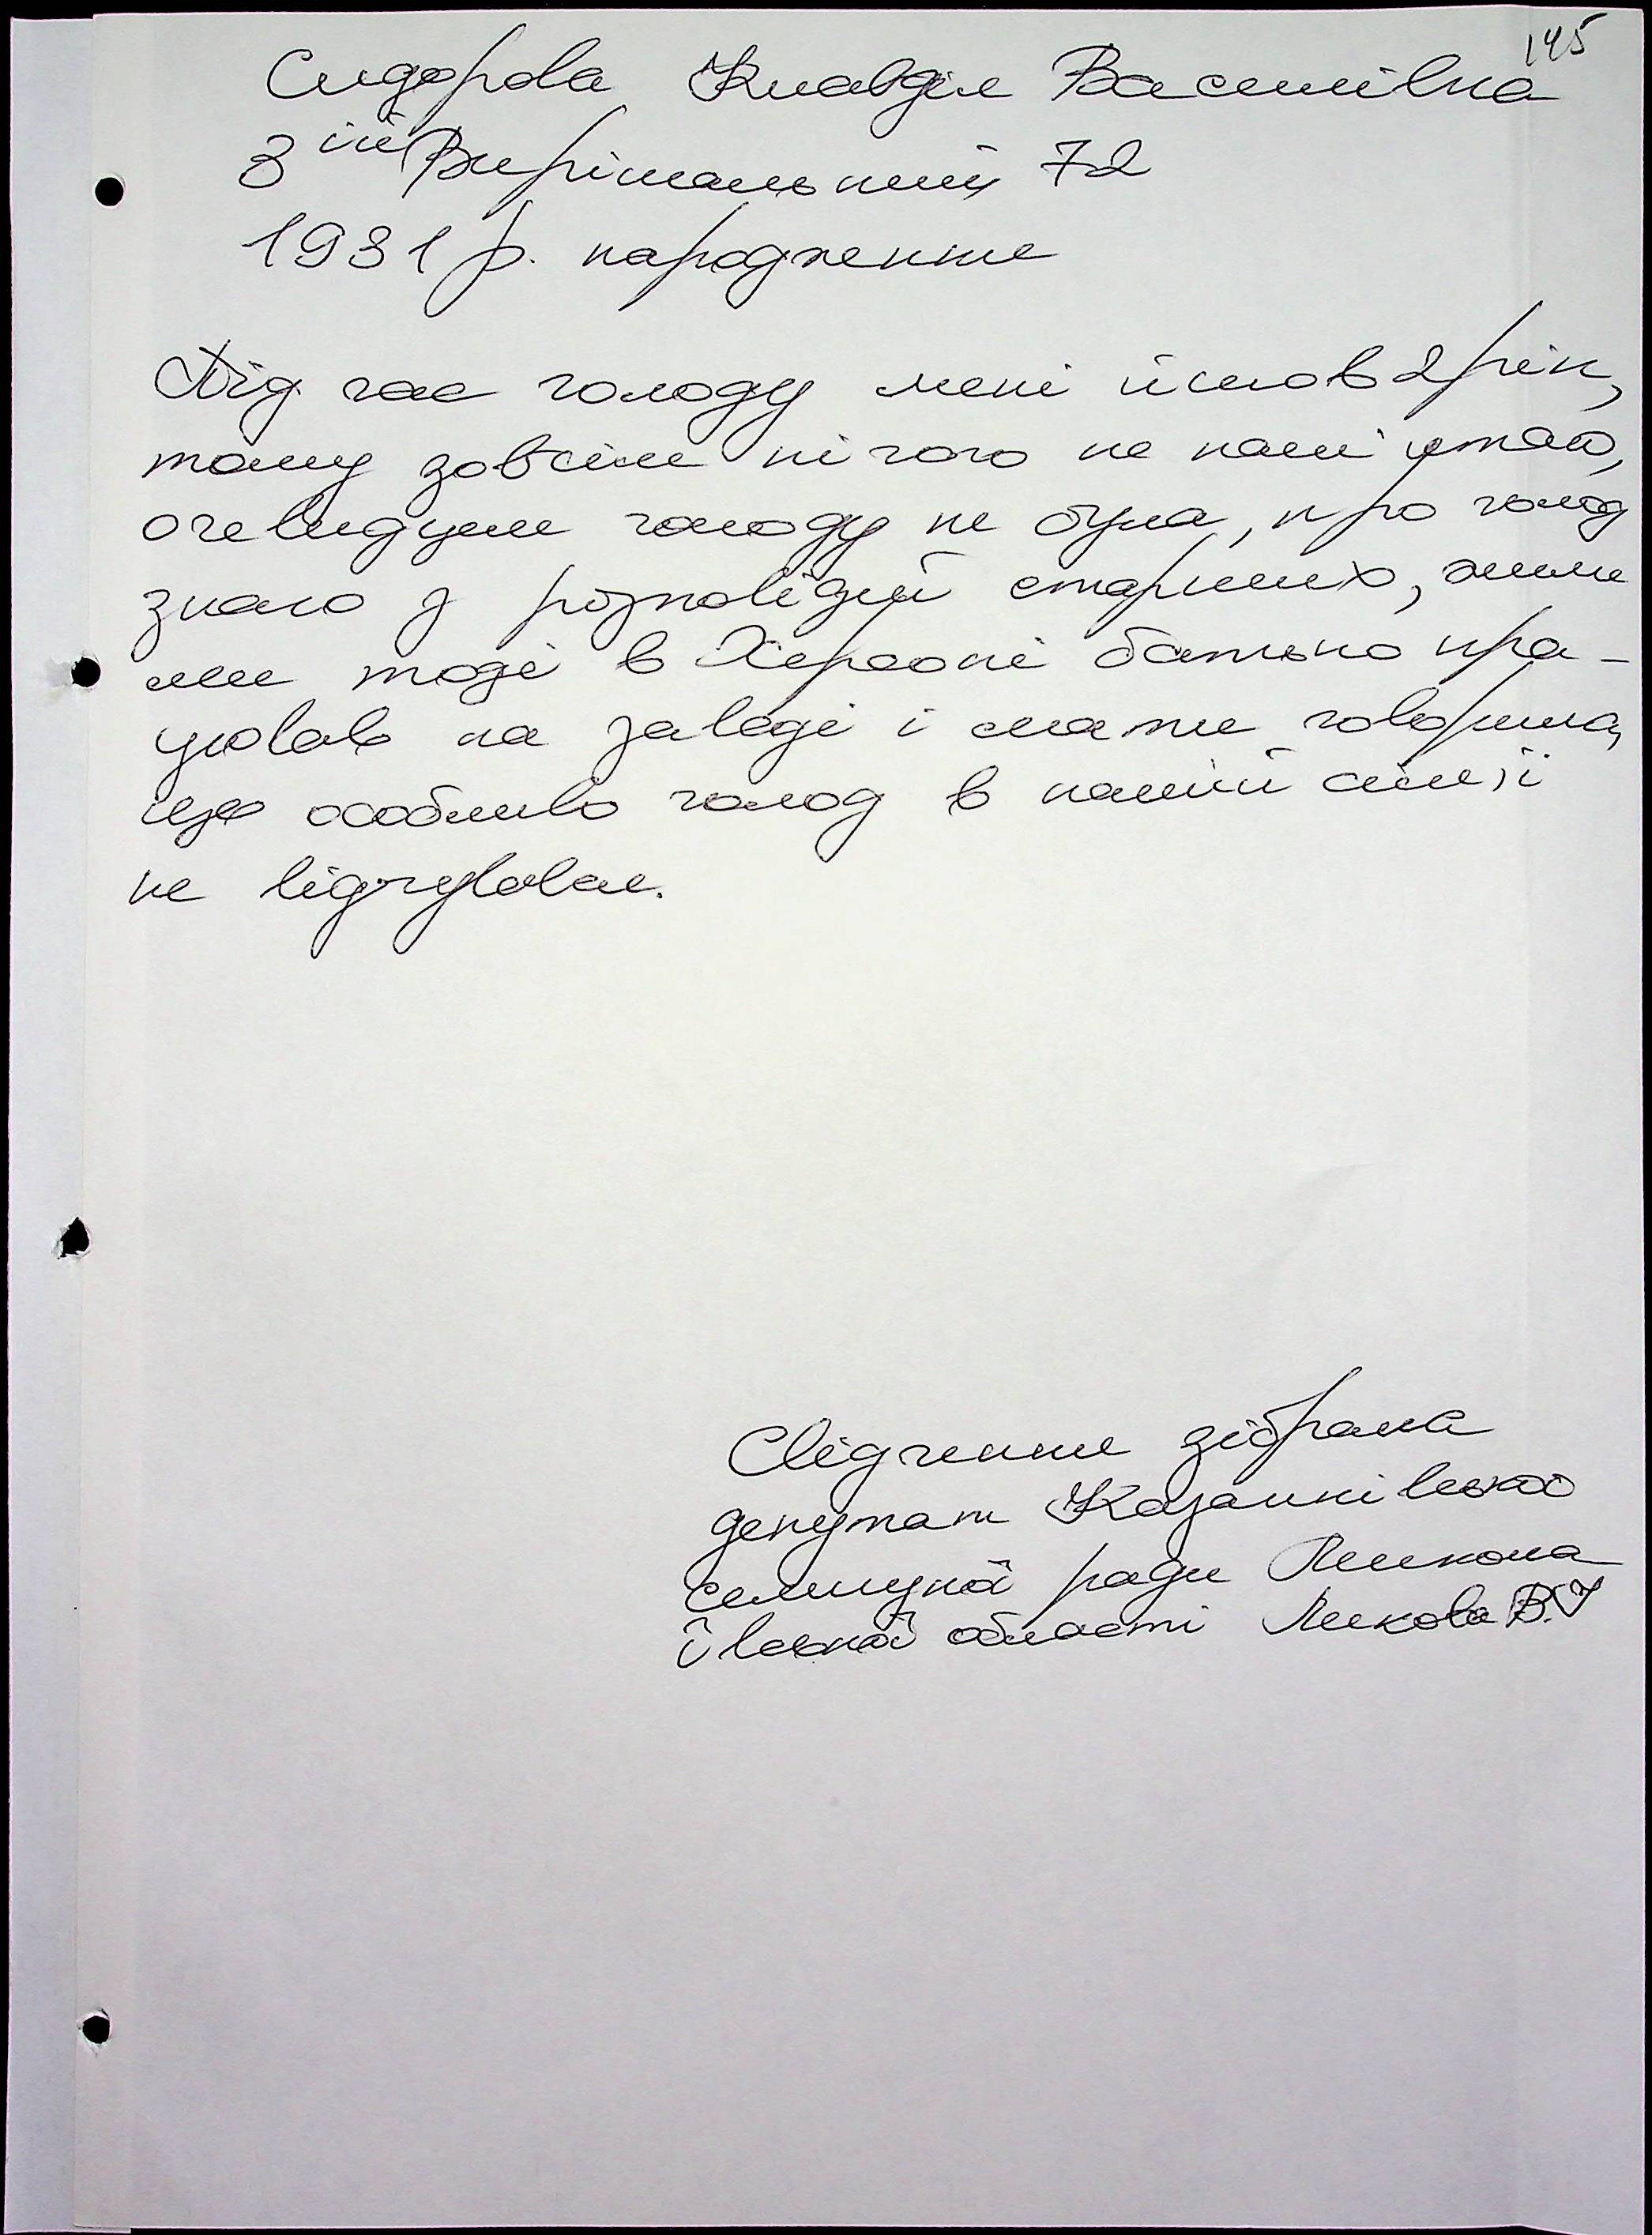 145
Сидорова Клавдія Василівна
3ій Вирішальний 72
1931 р. народження
Під час голоду мені йшов 2 рік,
тому зовсім нічого не пам'ятаю,
очевидцем голоду не була, про голод
знаю з розповідей старших, жили
ми тоді в Херсоні батько пра-
цював на заводі і мати говорила,
що особливо голод в нашій сім'ї
не відчувався.
Свідчення зібрала
депутат Казанківської
селищної ради Микола
ївської області Ликова В.І